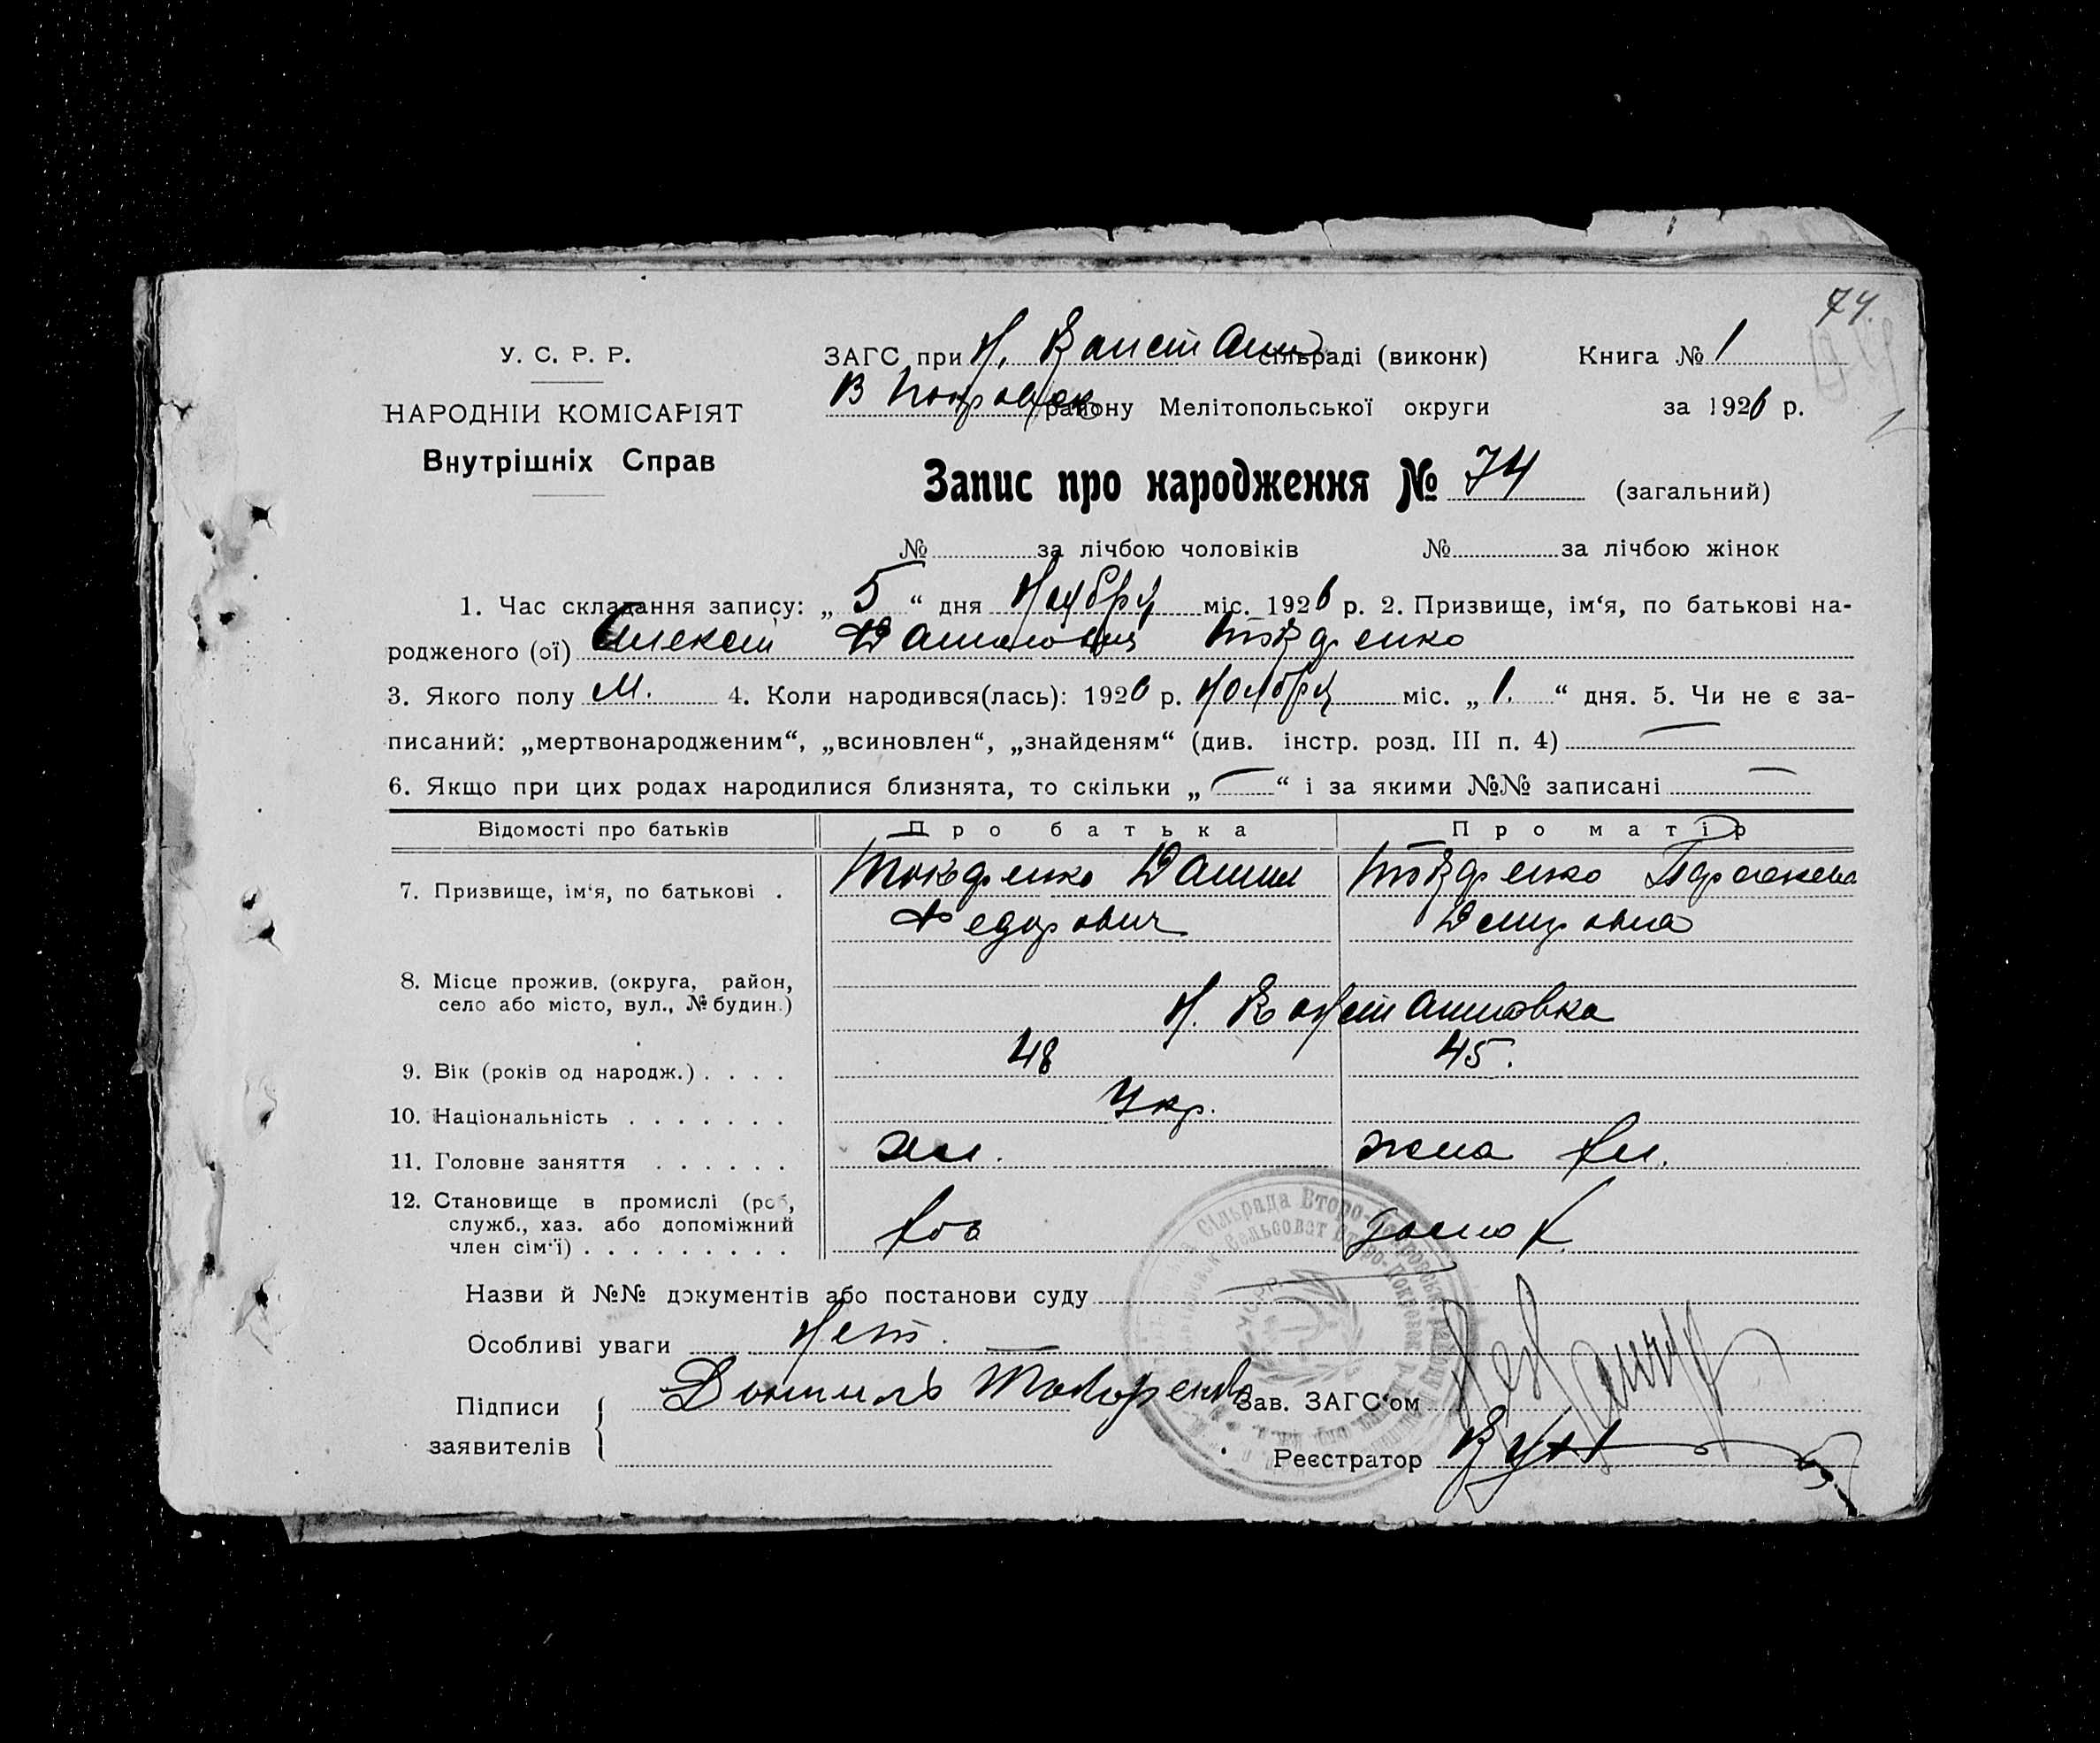 74.
У. С. Р. Р.
ЗАГС при Н. Констан сільраді (виконк) Книга № 1
НАРОДНІЙ КОМІСАРІЯТ
В Покровск району Мелітопольської округи за 1926 р.
Внутрішніх Справ
Запис про народження № 74 (загальний)
№ за лічбою чоловіків № за лічбою жінок
1. Час складання запису: „ 5 “ дня Ноября міс. 1926 р. 2. Призвище, ім‘я, по батькові на-
родженого (ої) Алексей Данилович
3. Якого полу М. 4. Коли народився(лась): 1926 р. Ноября міс. „ 1. “ дня. 5. Чи не є за-
писаний: „мертвонародженим“, „всиновлен“, „знайденям“ (див. інстр. розд. III п. 4) —
6. Якщо при цих родах народилися близнята, то скільки „ — “ і за якими №№ записані —
Відомості про батьків Про батька Про матір
7. Призвище, ім‘я, по батькові . Данил Параскева
Федорович
8. Місце прожив. (округа, район,
село або місто, вул., № будин.) Н. Константиновка
9. Вік (років од народж.) . . . . 48 45.
10. Національність . . . . . . . Укр.
11. Головне заняття . . . . . . жена
12. Становище в промислі (роб,
служб., хаз. або допоміжний
член сім‘ї) . . . . . . . . . хоз
Назви й №№ документів або постанови суду
Особливі уваги Нет. —
Підписи Данилъ Зав. ЗАГС‘ом
заявителів
Реєстратор